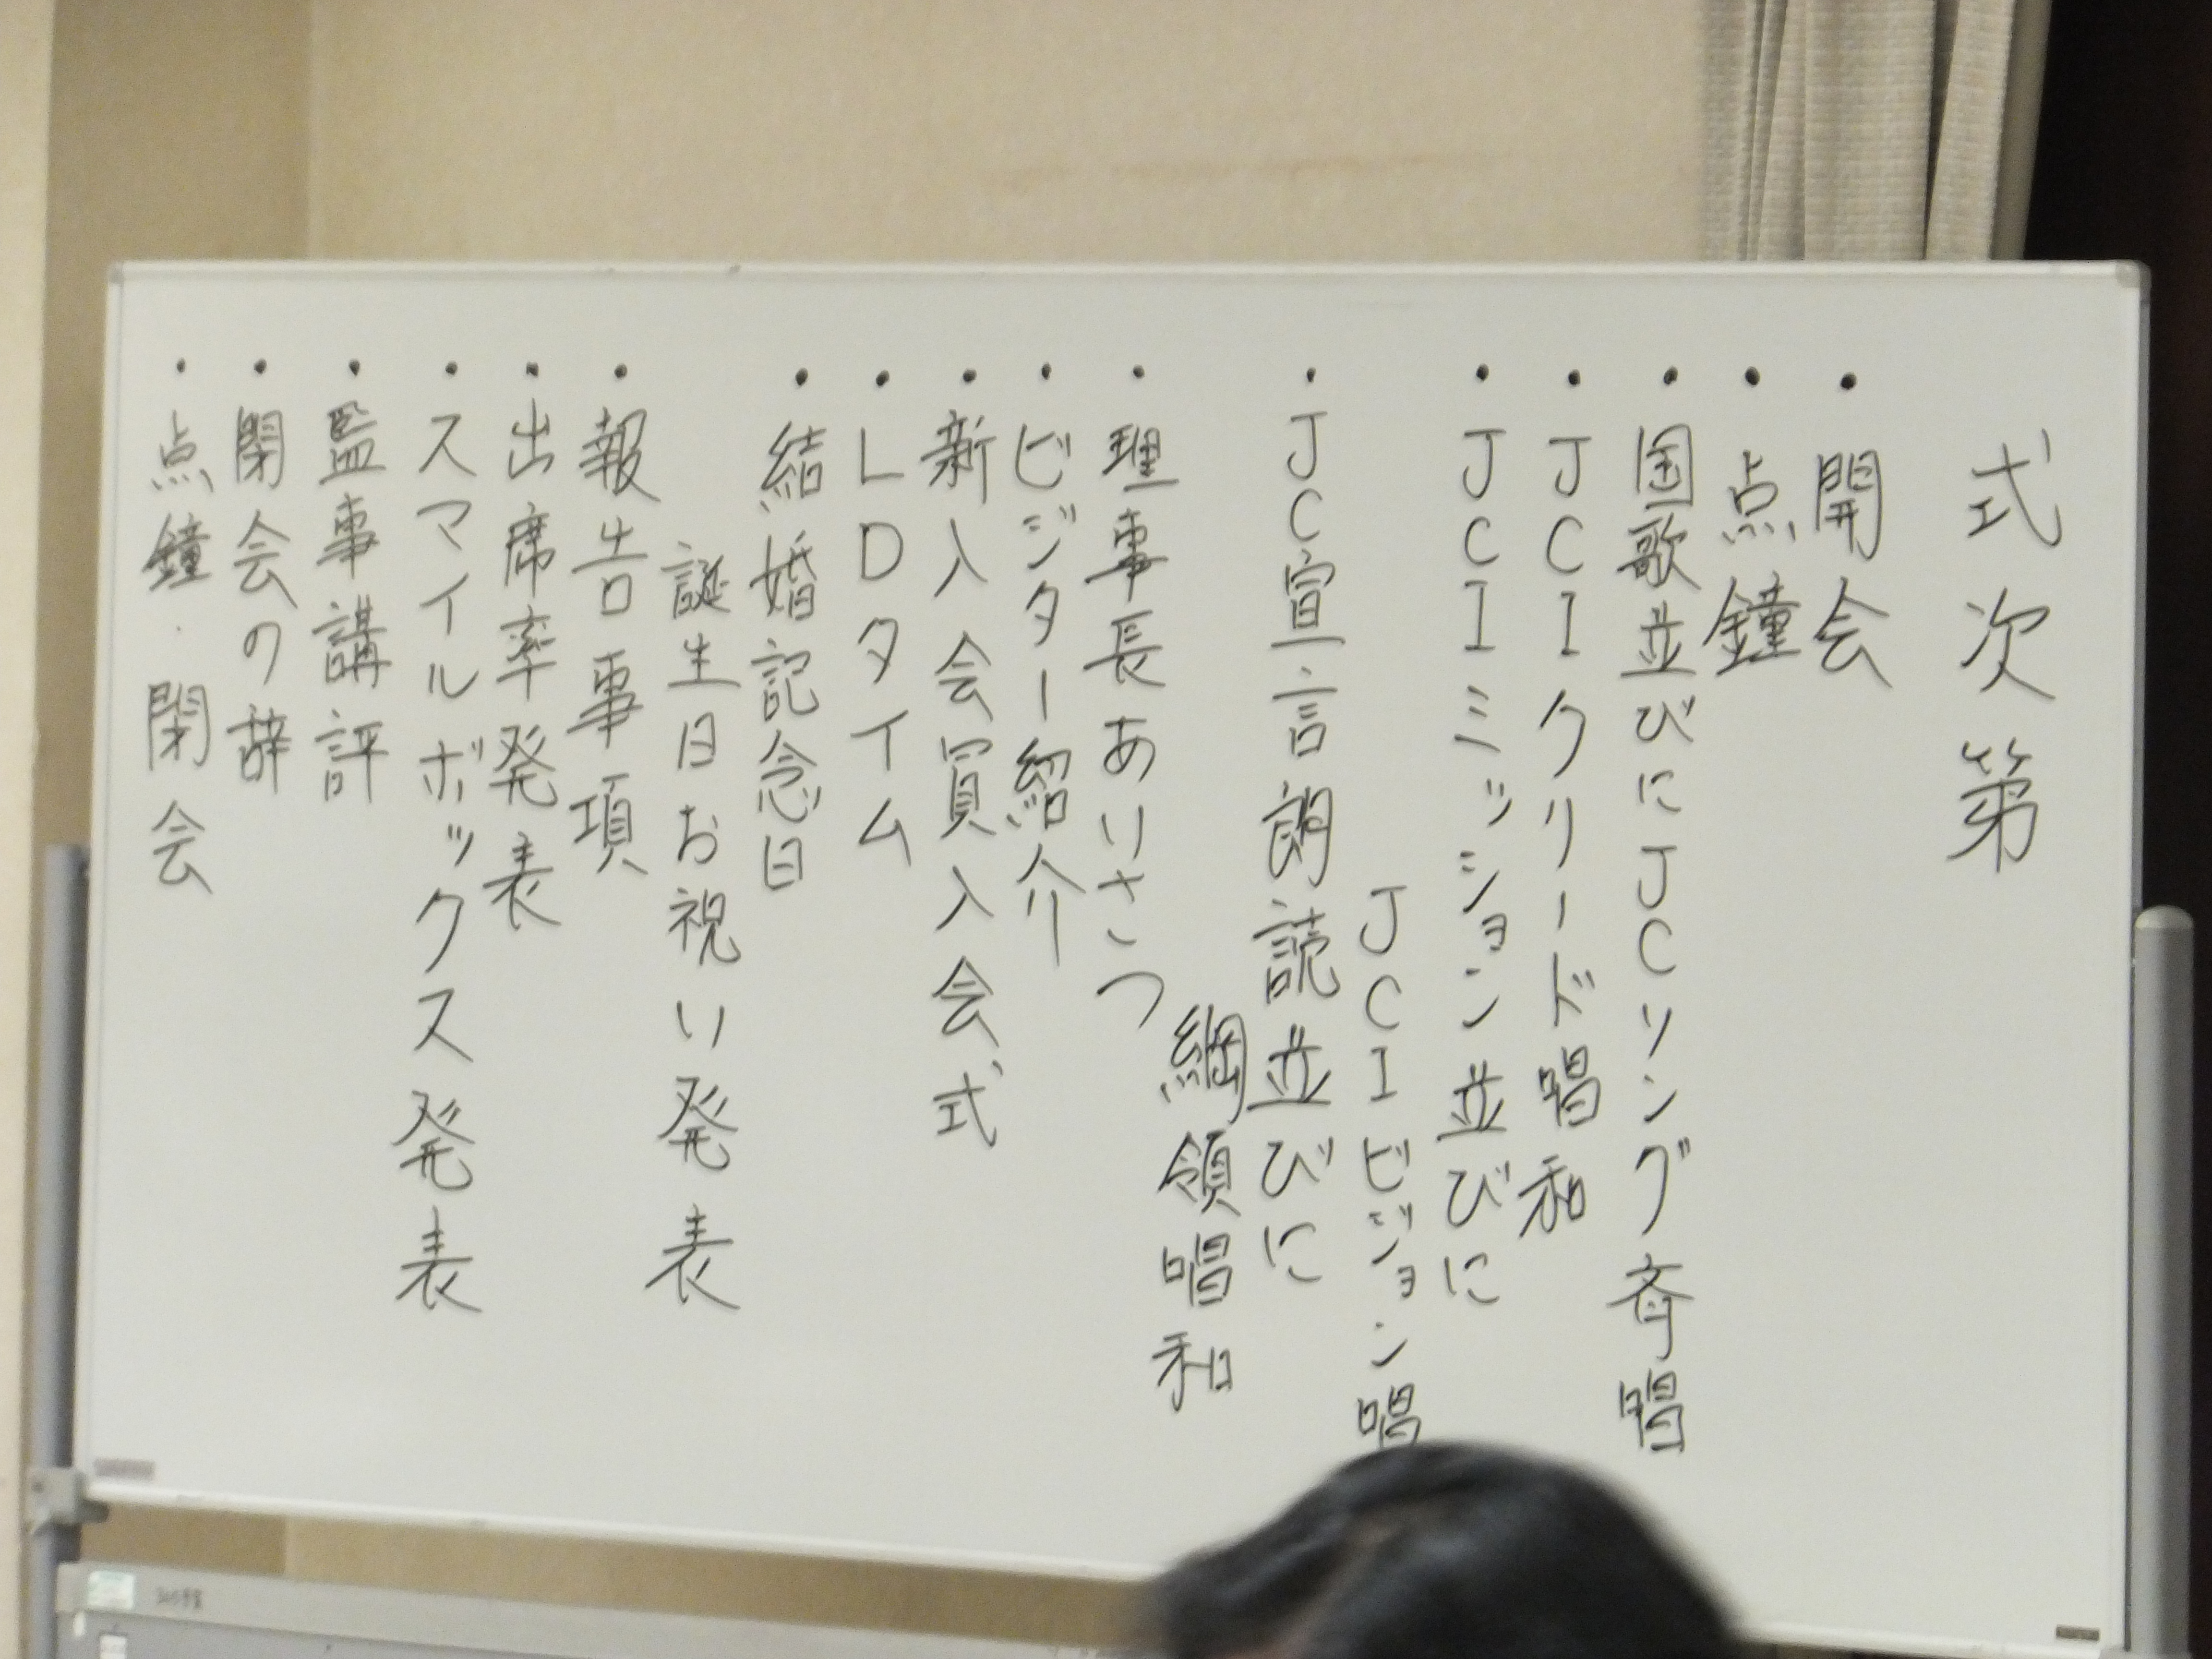 式次第
・開会
・点鐘
・国歌並びにJCソング斉唱
・JCIクリード唱和
・JCIミッション並びに
JCIビジョン唱
・JC宣言朗読並びに
綱領唱和
・理事長あいさつ
・ビジター紹介
・新入会員入会式
・LDタイム
・結婚記念日
誕生日お祝い発表
・報告事項
・出席率発表
・スマイルボックス発表
・監事講評
・閉会の辞
・点鐘・閉会